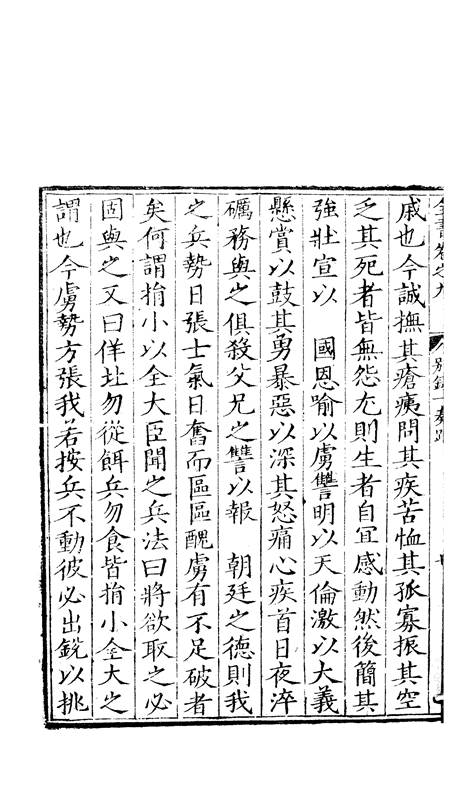 全書卷之九　別錄一奏疏
戚也今誠撫其瘡痍問其疾苦恤其孤寡振其空
乏其死者皆無怨尤則生者自冝感動然後簡其
強壯宣以　國恩喻以虜讐明以天倫激以大義
懸賞以鼓其勇暴惡以深其怒痛心疾首日夜淬
礪務與之俱殺父兄之讐以報　朝廷之德則我
之兵勢日張士氣日奮而區區醜虜有不足破者
矣何謂捎小以全大臣聞之兵法曰將欲取之必
固與之又曰佯北勿從餌兵勿食皆捎小全大之
謂也今虜勢方張我若按兵不動彼必出銳以挑